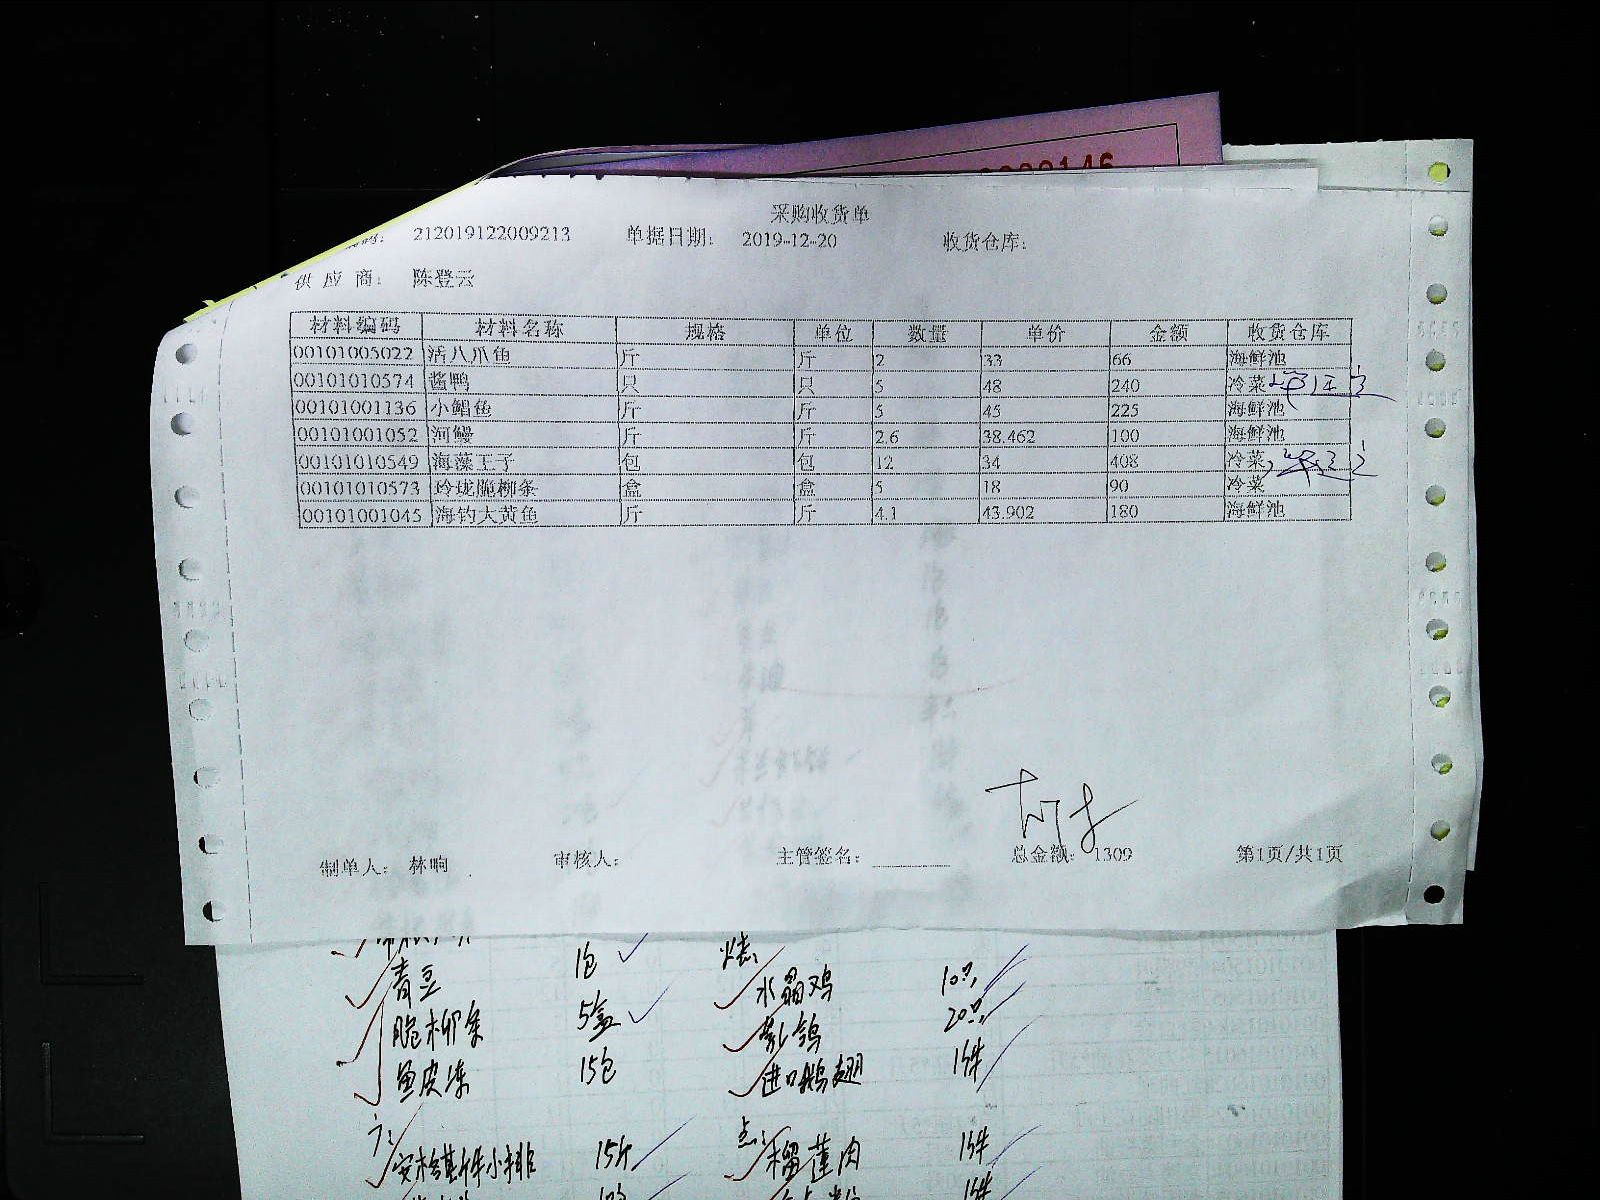 采购收货单
212019122009213 单据日期: 2019-12-20 收货仓库:
供应商: 陈登云
材料编码 材料名称 规格 单位 数量 单价 金额 收货仓库
00101005022 活八爪鱼 斤 斤 2 33 66 海鲜池
00101010574 酱鸭 只 只 5 48 240 冷菜
00101001136 小鲳鱼 斤 斤 5 45 225 海鲜池
00101001052 河鳗 斤 斤 2.6 38.462 100 海鲜池
00101010549 海藻王子 包 包 12 34 408 冷菜
00101010573 玲珑脆柳条 盒 盒 5 18 90 冷菜
00101001045 海钓大黄鱼 斤 斤 4.1 43.902 180 海鲜池
制单人: 林响 审核人: 主管签名: 总金额: 1309 第1页/共1页
青豆 1包 水晶鸡 10只
脆柳条 5盒 乳鸽 20只
鱼皮冻 15包 进口鹅翅 1件
安格斯牛小排 15斤 榴莲肉 1件